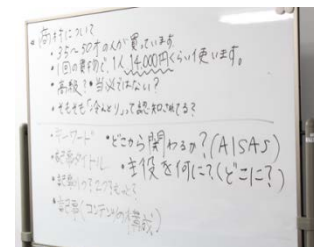 ・35〜50才の人が買っています。
・1回の買物で、1人14,000円くらい使います。
・高級!・当必ではない?
・そもそも「 」って認知されてる?
・キーワード ・どこから関わるか?(AISAS)
・記事タイトル ・主役を何に?(どこに?)
・記事
・記事(コンテンツの構成)